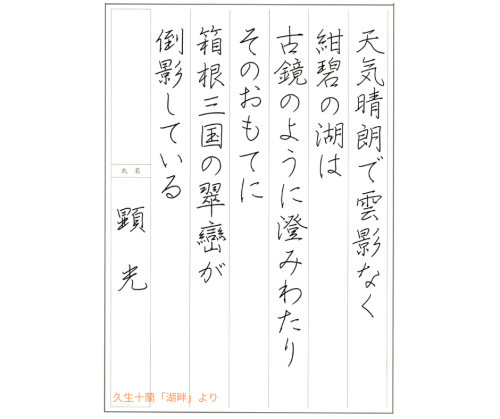 天気晴朗で雲影なく
紺碧の湖は
古鏡のように澄みわたり
そのおもてに
箱根三国の翠巒が
倒影している
氏名
顕光
久生十蘭「湖畔」より